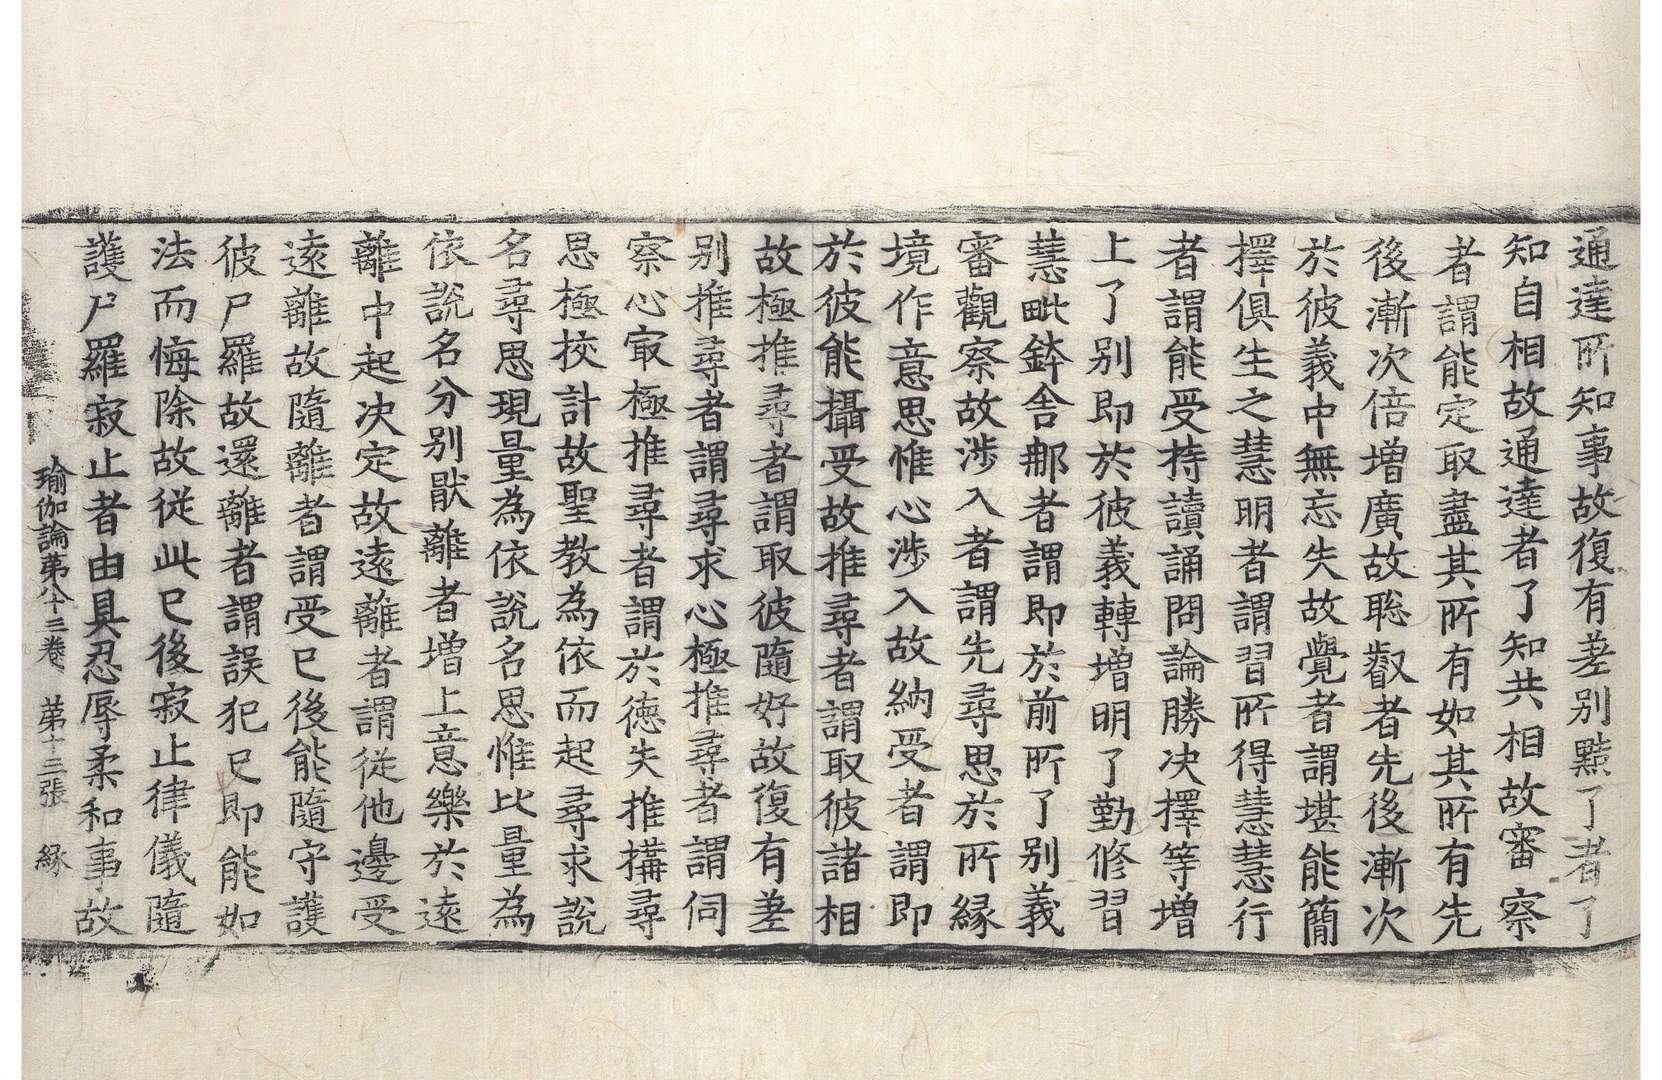 通達所知事故復有差別黠了者了
知自相故通達者了知共相故審察
者謂能定取盡其所有如其所有先
後漸次倍增廣故聡叡者先後漸次
於彼義中無忘失故覺者謂堪能簡
擇俱生之慧明者謂習所得慧慧行
者謂能受持讀誦問論勝决擇等增
上了別即於彼義轉增明了勤修習
慧毗鉢舍那者謂即於前所了別義
審觀察故涉入者謂先尋思於所縁
境作意思惟心涉入故納受者謂即
於彼能攝受故推尋者謂取彼諸相
故極推尋者謂取彼隨好故復有差
別推尋者謂尋求心極推尋者謂伺
察心㝡極推尋者謂於徳失推搆尋
思極挍計故聖教為依而起尋求說
名尋思現量為依說名思惟比量為
依說名分別猒離者增上意樂於遠
離中起决定故遠離者謂從他邊受
遠離故隨離者謂受已後能隨守護
彼尸羅故還離者謂誤犯已即能如
法而悔除故従此已後寂止律儀隨
護尸羅寂止者由具忍辱柔和事故
瑜伽論第八十三卷 第十三張 縁